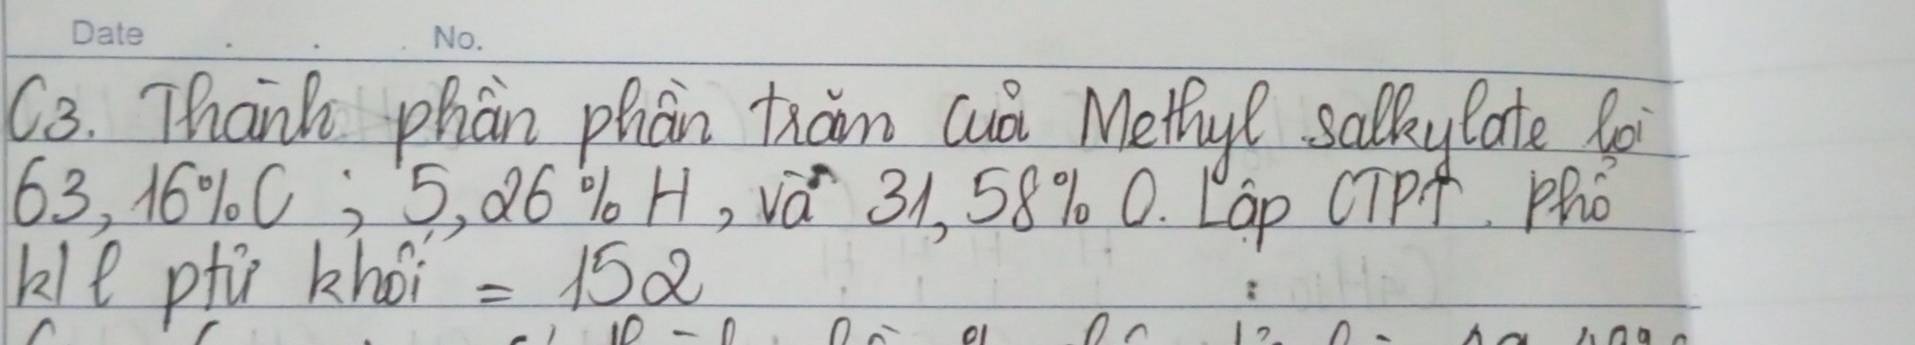 Date No.
C3. Thành phần phần trăm của Methyl salkylate là
63,16%C ; 5,26%H, và 31,58% O. Lập CTPT. Phổ
kll ptử khối = 152